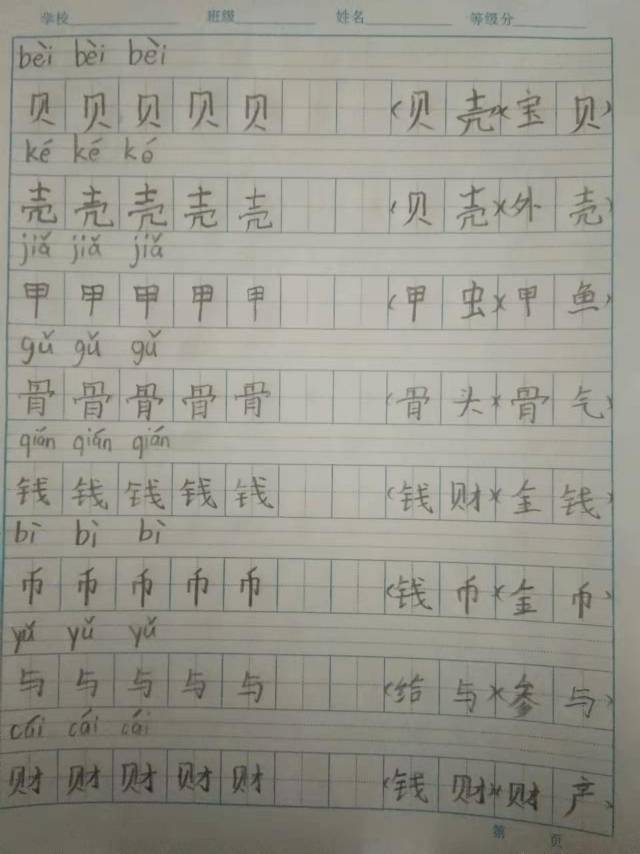 学校 班级 姓名 等级分
bèi bèi bèi
贝 贝 贝 贝 贝 (贝 壳)(宝 贝)
ké ké ké
壳 壳 壳 壳 壳 (贝 壳)(外 壳)
jiǎ jiǎ jiǎ
甲 甲 甲 甲 甲 (甲 虫)(甲 鱼)
gǔ gǔ gǔ
骨 骨 骨 骨 骨 (骨 头)(骨 气)
qián qián qián
钱 钱 钱 钱 钱 (钱 财)(金 钱)
bì bì bì
币 币 币 币 币 (钱 币)(金 币)
yǔ yǔ yǔ
与 与 与 与 与 (给 与)(参 与)
cái cái cái
财 财 财 财 财 (钱 财)(财 产)
第 页